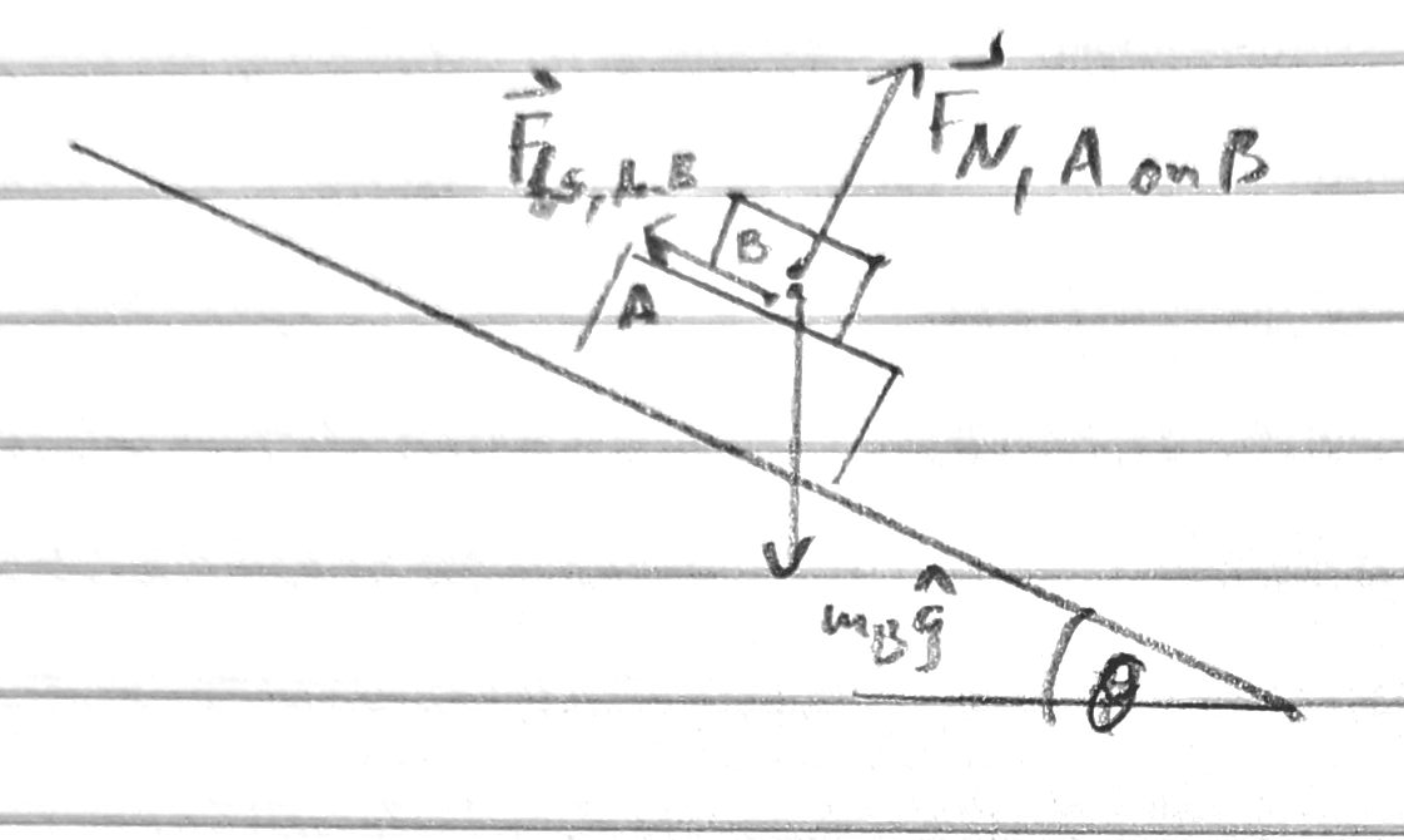 F⃗fs, A-B
F⃗N, A on B
B
A
mBĝ
θ